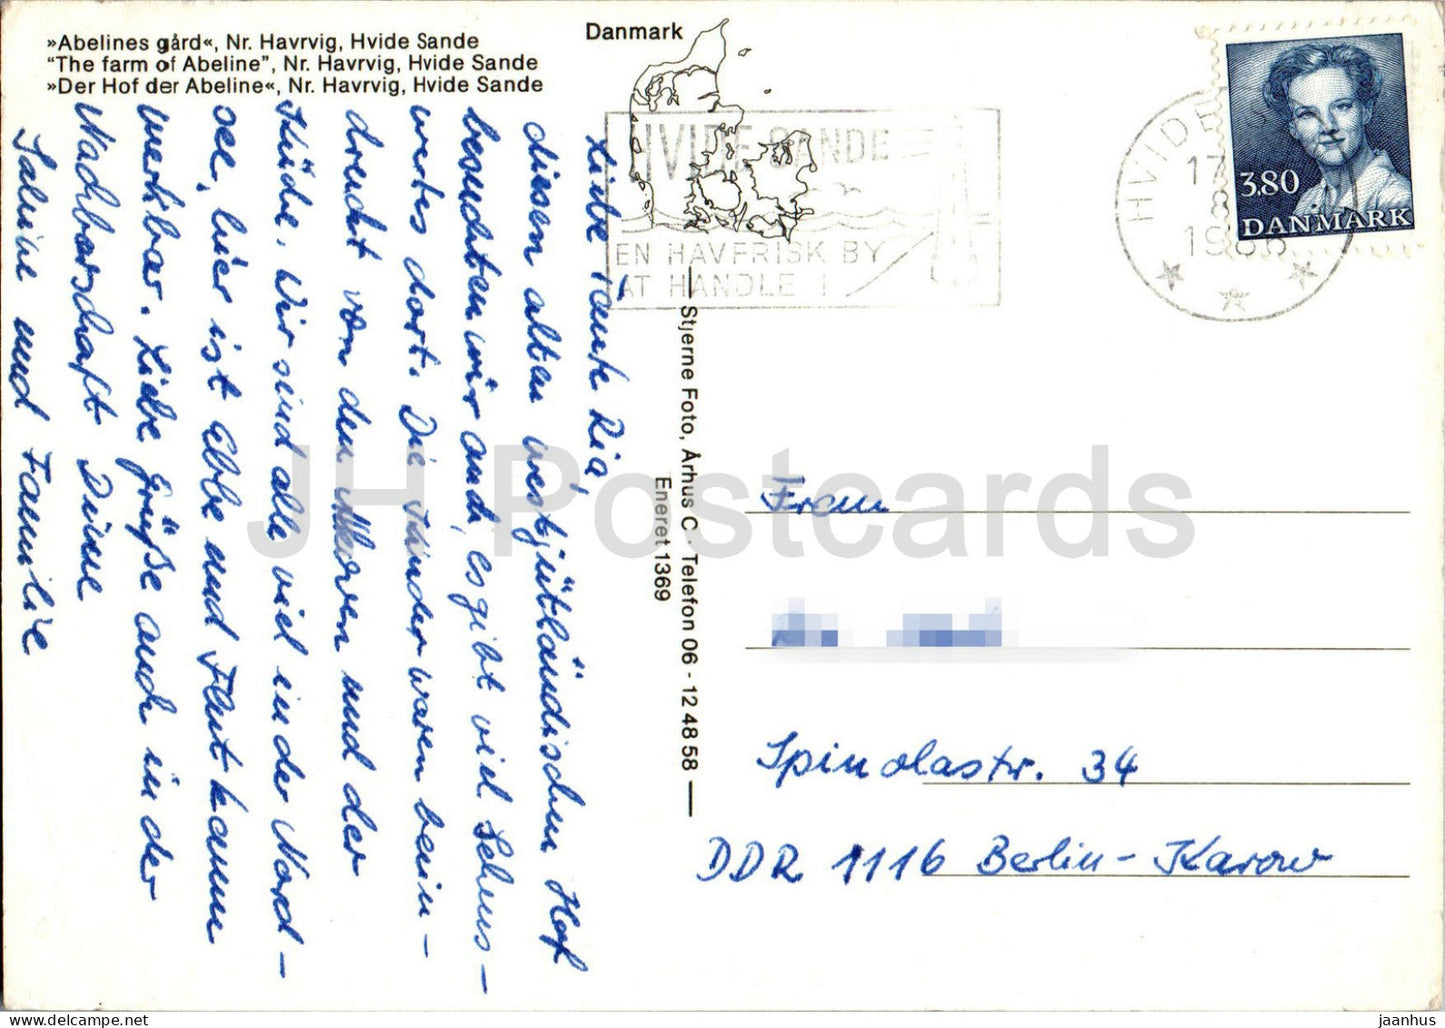 »Abelines gård«, Nr. Havrvig, Hvide Sande
“The farm of Abeline”, Nr. Havrvig, Hvide Sande
»Der Hof der Abeline«, Nr. Havrvig, Hvide Sande
Danmark
HVIDE SANDE
EN HAVFRISK BY
AT HANDLE I
HVIDE
17
8
1986
3.80
DANMARK
Liebe Tante Ria,
diesen alten westjütländischen Hof
besuchten wir auch, es gibt viel Sehens-
wertes dort. Die Kinder waren beein-
druckt von den Möwen und der
Küste. Wir sind alle viel in der Nord-
see, hier ist Ebbe und Flut kaum
merkbar. Liebe Grüße auch in der
Nachbarschaft Deine
Sabine und Familie
Stjerne Foto, Århus C. - Telefon 06 - 12 48 58
Eneret 1369
Frau
Spinolastr. 34
DDR 1116 Berlin-Karow
JH Postcards
https://www.delcampe.net
jaanhus